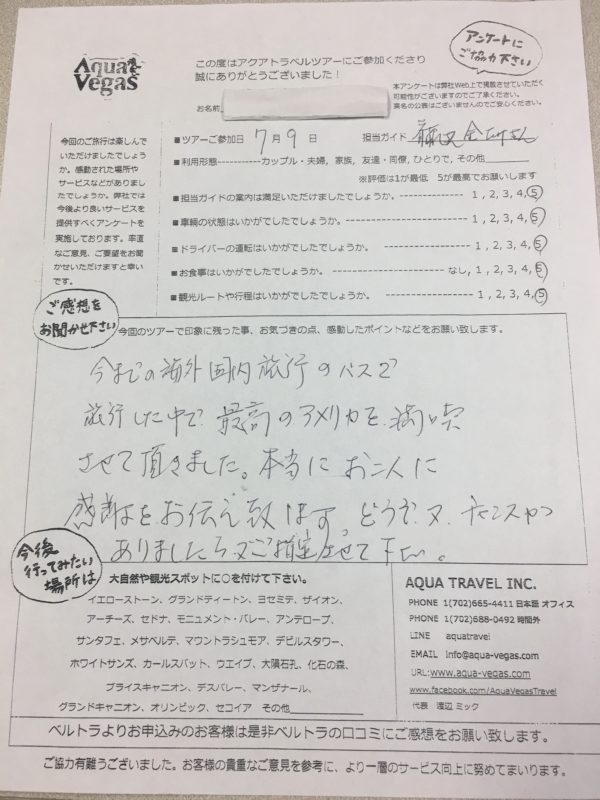 Aqua
Vegas
この度はアクアトラベルツアーにご参加くださり
誠にありがとうございました！
アンケートに
ご協力下さい
本アンケートは弊社Web上で掲載させていただく
可能性がございますのでご了承ください。
実名の公表はございませんのでご安心ください。
お名前
今回のご旅行は楽しんで
いただけましたでしょう
か。感動された場所や
サービスなどがありまし
たでしょうか。弊社では
今後より良いサービスを
提供すべくアンケートを
実施しております。率直
なご意見、ご要望をお聞
かせいただけますと幸い
です。
■ツアーご参加日 7月 9 日 担当ガイド
■利用形態-----------カップル・夫婦, 家族, 友達・同僚, ひとりで, その他
※評価は1が最低 5が最高でお願いします
■担当ガイドの案内は満足いただけましたでしょうか。 1 , 2, 3, 4, 5
■車輌の状態はいかがでしたでしょうか。 1 , 2, 3, 4, 5
■ドライバーの運転はいかがでしたでしょうか。 1 , 2, 3, 4, 5
■お食事はいかがでしたでしょうか。 なし, 1, 2, 3, 4, 5
■観光ルートや行程はいかがでしたでしょうか。 1 , 2, 3, 4, 5
ご感想を
お聞かせ下さい
今回のツアーで印象に残った事、お気づきの点、感動したポイントなどをお願い致します。
今までの海外国内旅行のバスで
旅行した中で 最高のアメリカを 満喫
させて頂きました。本当に お二人に
感謝をお伝え致します。どうぞ 又 チャンスが
ありましたら 又ご させて下さい。
今後
行ってみたい
場所は
大自然や観光スポットに○を付けて下さい。
イエローストーン、グランドティートン、ヨセミテ、ザイオン、
アーチーズ、セドナ、モニュメント・バレー、アンテロープ、
サンタフェ、メサベルデ、マウントラシュモア、デビルスタワー、
ホワイトサンズ、カールスバット、ウエイブ、大隕石孔、化石の森、
ブライスキャニオン、デスバレー、マンザナール、
グランドキャニオン、オリンピック、セコイア その他
AQUA TRAVEL INC.
PHONE 1(702)665-4411 日本語 オフィス
PHONE 1(702)688-0492 時間外
LINE aquatravel
EMAIL info@aqua-vegas.com
URL:www.aqua-vegas.com
www.facebook.com/AquaVegasTravel
代表 渡辺 ミック
ベルトラよりお申込みのお客様は是非ベルトラの口コミにご感想をお願い致します。
ご協力有難うございました。お客様の貴重なご意見を参考に、より一層のサービス向上に努めてまいります。